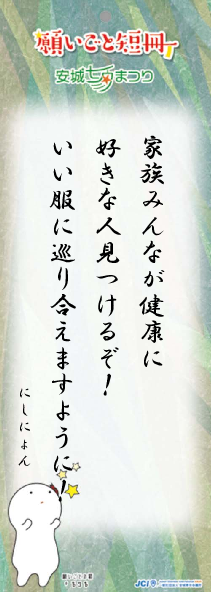 願いごと短冊
安城七夕まつり
家族みんなが健康に
好きな人見つけるぞ！
いい服に巡り合えますように！
にしにょん
JCI